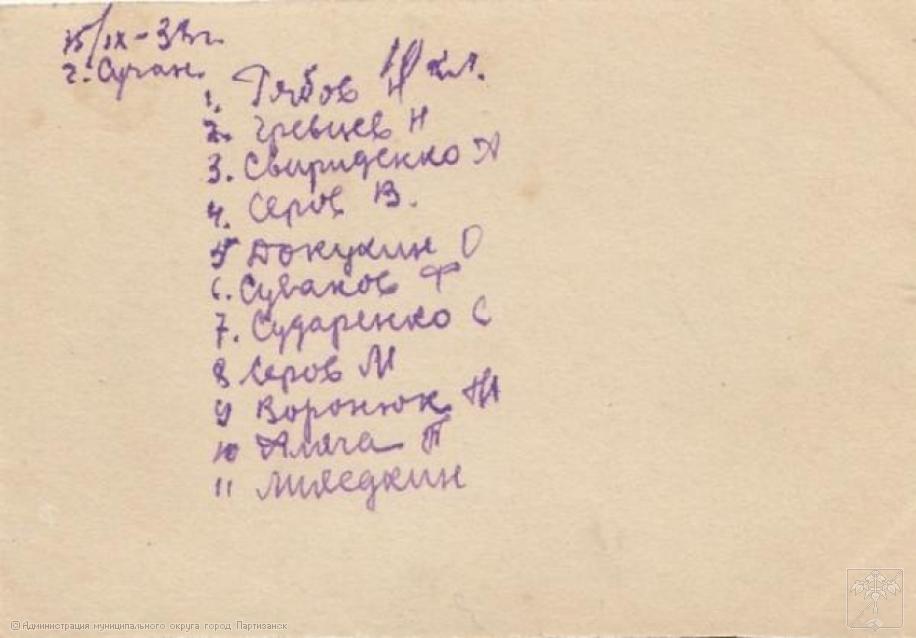 15/IX-39г.
г. Сучан.
1. Рябов Н кл.
2. Гревцев Н
3. Свириденко А
4. Серов В.
5 Докукин О
6. Суваков Ф
7. Сударенко С
8 Серов М
9 Воронюк
10 Аляга П
11
© Администрация муниципального округа город Партизанск